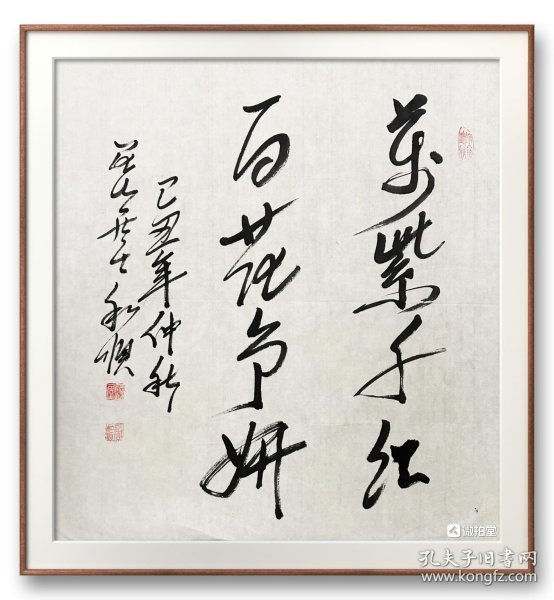 萬紫千红
百花争妍
己丑年仲秋
居士
微拍堂
孔夫子旧书网
www.kongfz.com